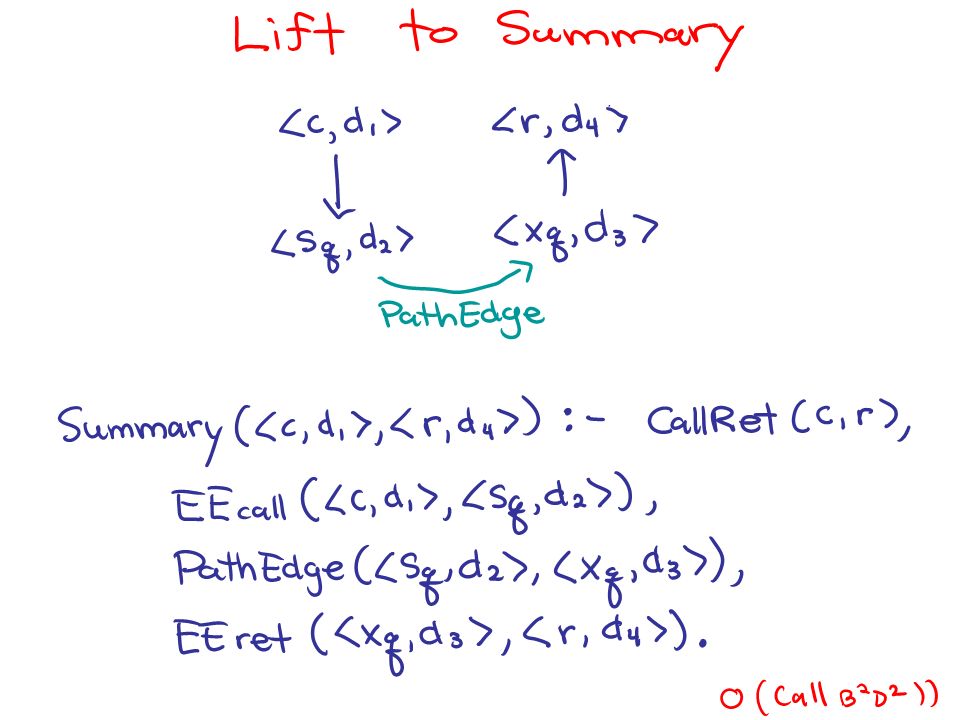 Lift to Summary
<c,d₁> <r,d₄>
<Sq,d₂> <xq,d₃>
PathEdge
Summary(<c,d₁>,<r,d₄>) :- CallRet(c,r),
EEcall(<c,d₁>,<Sq,d₂>),
PathEdge(<Sq,d₂>,<xq,d₃>),
EEret(<xq,d₃>,<r,d₄>).
O(Call B²D²))